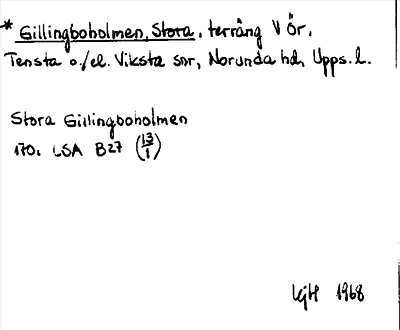 * Gillingboholmen, Stora, terräng V Ör,
Tensta o./el. Viksta snr, Norunda hd, Upps. l.
Stora Gillingboholmen
170. LSA B27 (13/1)
1968